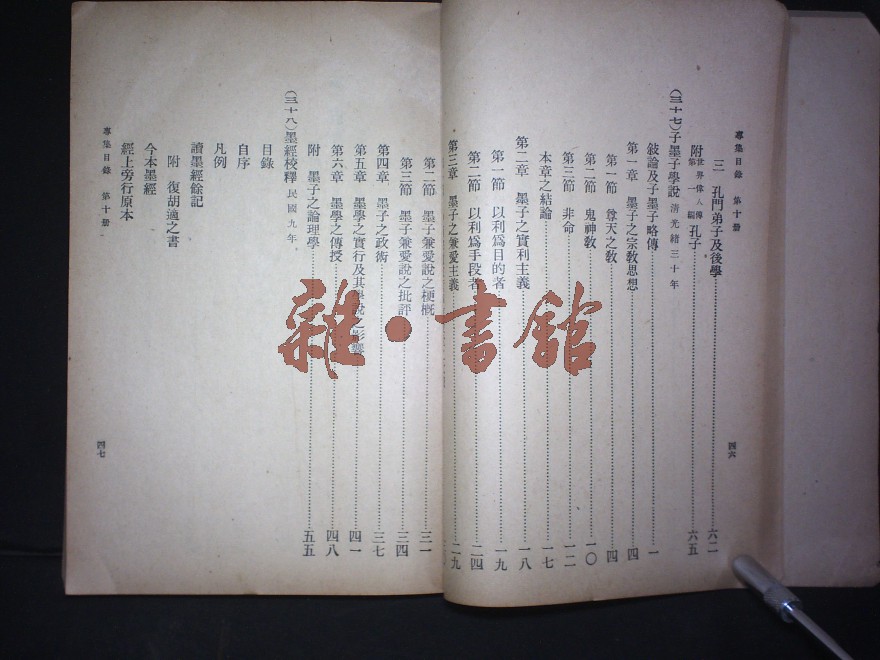 專集目錄 第十册
四六
三 孔門弟子及後學 六二
附 世界偉人傳第一編 孔子 六五
(三十七)子墨子學說 清光緒三十年
敍論及子墨子略傳 一
第一章 墨子之宗教思想 四
第一節 尊天之教 四
第二節 鬼神教 一〇
第三節 非命 一二
本章之結論 一七
第二章 墨子之實利主義 一八
第一節 以利爲目的者 一九
第二節 以利爲手段者 二四
第三章 墨子之兼愛主義 二九
第二節 墨子兼愛說之梗概 三一
第三節 墨子兼愛說之批評 三四
第四章 墨子之政術 三七
第五章 墨學之實行及其學說之影響 四一
第六章 墨學之傳授 四八
附 墨子之論理學 五五
(三十八)墨經校釋 民國九年
目錄
自序
凡例
讀墨經餘記
附 復胡適之書
今本墨經
經上旁行原本
專集目錄 第十册
四七
雜·書館